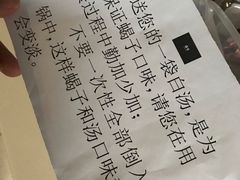 送您的一袋白汤,是为
保证蝎子口味,请您在用
过程中勤加少加;
不要一次性全部倒入
锅中,这样蝎子和汤口味
会变淡。